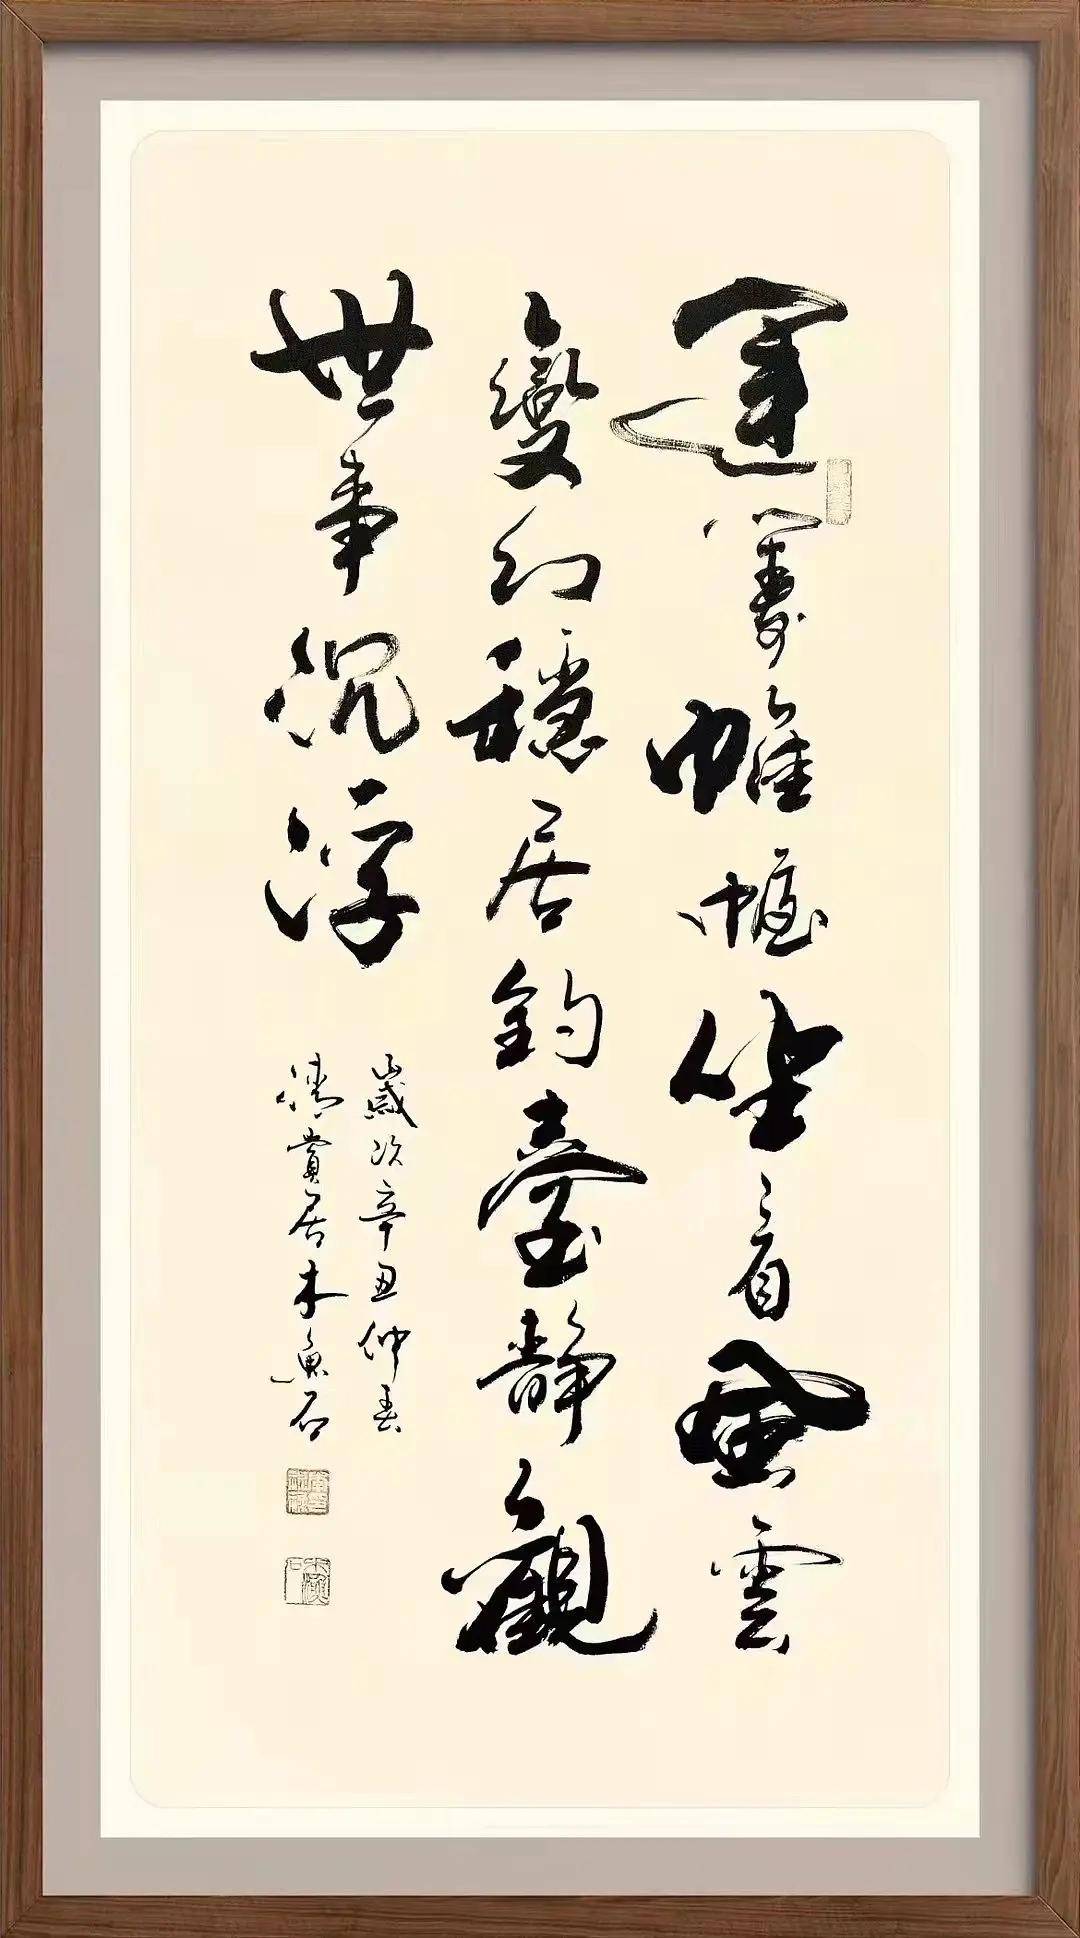 運籌帷幄坐看風雲
變幻穩居釣臺靜觀
世事沉浮
歲次辛丑仲春
清賞居木魚石